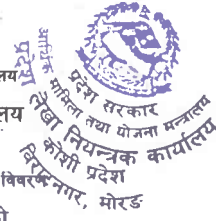 लय
लय
विवरण
प्रदेश सरकार
आर्थिक मामिला तथा योजना मन्त्रालय
प्रदेश लेखा नियन्त्रक कार्यालय
कोशी प्रदेश
विराटनगर, मोरङ